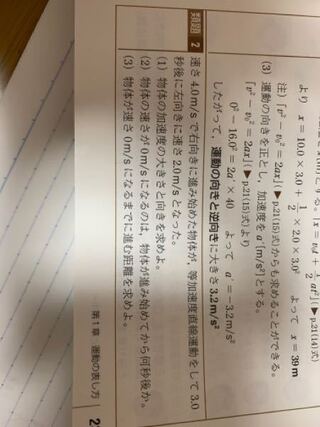 より x = 10.0 × 3.0 + 1/2 × 2.0 × 3.0² よって x = 39 m
注)「v² − v₀² = 2ax」(▶p.21(15)式)からも求めることができる。
(3) 運動の向きを正とし、加速度を a′〔m/s²〕とする。
「v² − v₀² = 2ax」(▶p.21(15)式)より
0² − 16.0² = 2a′ × 40 よって a′ = −3.2 m/s²
したがって、運動の向きと逆向きに大きさ 3.2 m/s²
類題 2 速さ 4.0 m/s で右向きに進み始めた物体が、等加速度直線運動をして 3.0
秒後に左向きに速さ 2.0 m/s となった。
(1) 物体の加速度の大きさと向きを求めよ。
(2) 物体の速さが 0 m/s になるのは、物体が進み始めてから何秒後か。
(3) 物体が速さ 0 m/s になるまでに進む距離を求めよ。
第1章 運動の表し方